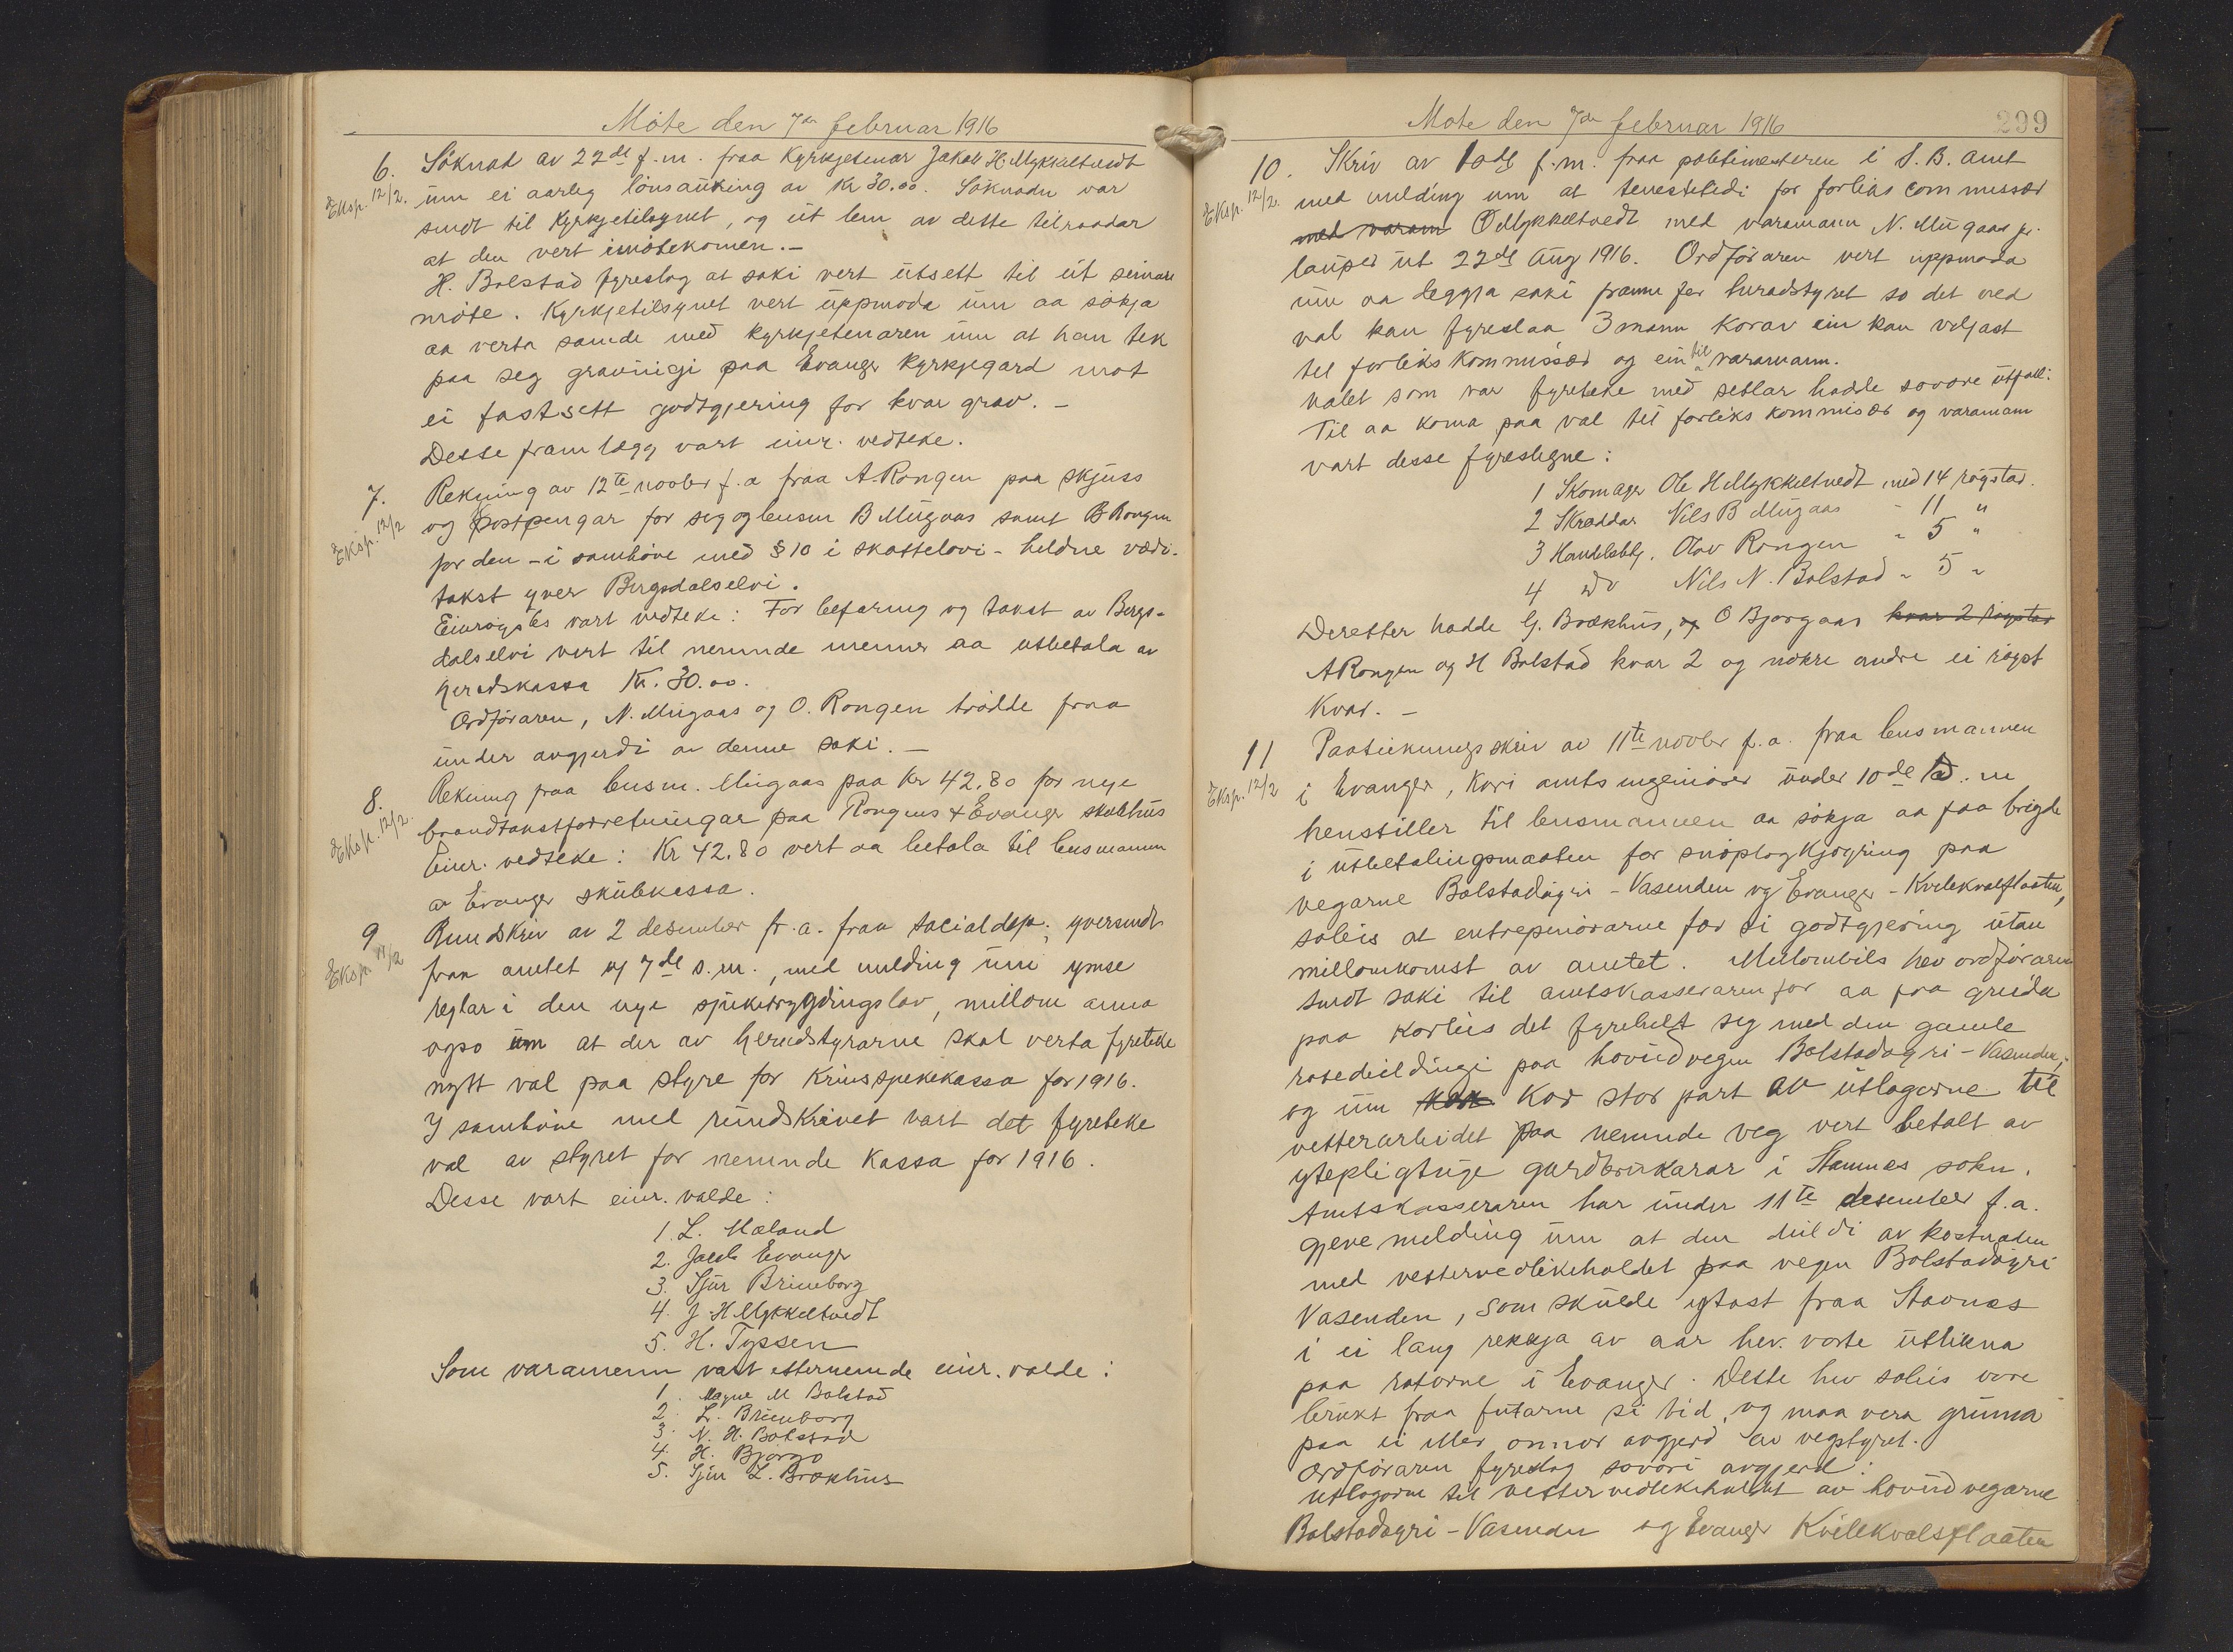 Møte den 7de februar 1916
6. Søknad av 22de f.m. fraa Kyrkjetenar Jakob H. Mykkeltvedt
Eksp. 12/2. um ei aarleg lønsauking av Kr 30.00. Søknadn var
sendt til Kyrkjetilsynet, og eit lem av dette tilraadar
at den vert imøtekomen.-
H. Bolstad fyreslog at saki vert utsett til eit seinare
møte. Kyrkjetilsynet vert uppmoda um aa søkja
aa verta samde med kyrkjetenaren um at han tek
paa seg gravingi paa Evanger Kyrkjegard mot
ei fastsett godtgjering for kvar grav. -
Desse framlegg vart einr. vedteke.
7. Rekning av 12te novbr f.a fraa A Rongen paa skjuss
Eksp. 12/2 og postpengar for seg og lensm B Mugaas samt B Rongen
for den - i samhøve med § 10 i skattelovi - heldne vædi-
takst yver Bergsdalselvi.
Einrøystes vart vedteke: For befaring og takst av Bergs-
dalselvi vert til nemnde menner aa utbetala av
heradskassa Kr. 30.00.
Ordføraren, N. Mugaas og O. Rongen trødde fraa
under avgjerdi av denne saki. -
8. Rekning fraa lensm. Mugaas paa Kr 42.80 for nye
Eksp. 12/2. brandtakstforretningar paa Rongens & Evanger skulhus
Einr. vedteke: Kr 42.80 vert aa betala til lensmann
av Evanger skulekassa.
9 Rundskriv av 2 desember f.a. fraa socialdep. yversendt
Eksp. 12/2 fraa amtet og 7de s.m., med melding um ymse
reglar i den nye sjuketrygdingslov, millom anna
ogso um at der av heradstyrarne skal verta fyreteke
nytt val paa styre for Krinssjukekassa for 1916.
I samhøve med rundskrivet vart det fyreteke
val av styret for nemnde kassa for 1916.
Desse vart einr. valde:
1. L. Mæland
2. Jacob Evanger
3. Sjur Brimeborg
4. J. H Mykkeltvedt
5. H. Tyssen
Som varamenn vart etternemde einr. valde:
1. Magne M Bolstad
2. L. Brimeborg
3. N. H. Bolstad
4. H. Bjørgo
5. Sjur L. Brækhus
Møte den 7de februar 1916
299
10. Skriv av 10de f.m. fraa politimesteren i S. B. amt
Eksp. 12/2. med melding um at tenestetidi for forlikscommissær
med varam O Mykkeltvedt med varamann N. Mugaas jr.
lauper ut 22de Aug 1916. Ordføraren vert uppmoda
um aa leggja saki framm fer heradstyret so det ved
val kan fyreslaa 3 mann korav ein kan veljast
til forlikskommissær og ein til varamann.
Valet som var fyreteke med setlar hadde sovore utfall:
Til aa koma paa val til forlikskommisær og varamann
vart desse fyreslegne:
1 Skomager Ole H Mykkeltvedt med 14 røystar.
2 Skræddar Nils B Mugaas - 11 "
3 Handelsblj. Olav Rongen " 5 "
4 do Nils N. Bolstad " 5 "
Deretter hadde G. Brækhus, og O Bjørgaas kvar 2 røystar
A Rongen og H Bolstad kvar 2 og nokre andre ei røyst
kvar. -
11 Paateikningsskriv av 11te novbr f.a. fraa lensmannen
Eksp. 12/2 i Evanger, kori amtsingeniører under 10de s.m
henstiller til lensmannen aa søkja aa faa brigde
i utbetalingsmaaten for snøplogkjøyring paa
vegarne Bolstadøyri - Vasenden og Evanger - Kvilekvalsflaaten,
soleis at entreprenørarne fær si godtgjering utan
millomkomst av amtet. Mulombils hev ordføraren
sendt saki til amtskasseraren for aa faa greida
paa korleis det fyreheld seg med den gamle
rotedeildingi paa hovudvegen Bolstadøyri - Vasenden;
og um kor stor part av utlogerne til
vetterarbeidet paa nemnde veg vert betalt av
ytepligtuge gardbrukarar i Stamnes sokn.
Amtskasseraren har under 11te desember f.a.
gjeve melding um at den deildi av kostnaden
med vettervedlikehaldet paa vegen Bolstadøyri
Vasenden, som skulde ytast fraa Stavnes
i ei lang rekkja av aar hev vorte utlikna
paa rotorne i Evanger. Dette hev soleis vore
brukt fraa futarne si tid, og maa vera gruna
paa ei eller onnor avgjerd av vegstyret.
Ordføraren fyreslog sovori avgjerd:
Utlogorne til vettervedlikehaldet av hovudvegarne
Bolstadøyri - Vasenden og Evanger Kvilekvalsflaaten